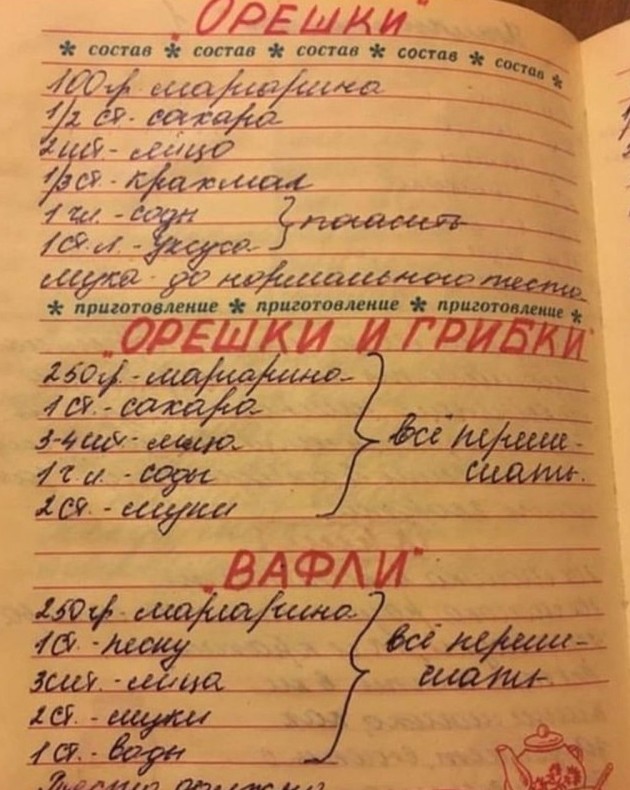 "ОРЕШКИ"
* состав * состав * состав * состав * состав *
100гр. маргарина
1/2 ст. сахара
2шт. - яйцо
1/3ст. - крахмал
1 ч.л. - соды } погасить
1 ст.л. - уксуса
мука - до нормального теста
* приготовление * приготовление * приготовление *
"ОРЕШКИ И ГРИБКИ"
250гр. - маргарина
1 ст. - сахара
3-4шт - яйца
1 ч.л. - соды
2 ст. - муки
всё переме-
шать.
"ВАФЛИ"
250гр. маргарина
1ст. - песку
3шт. - яйца
2 ст. - муки
1 ст. - воды
всё переме-
шать.
Тесто должно